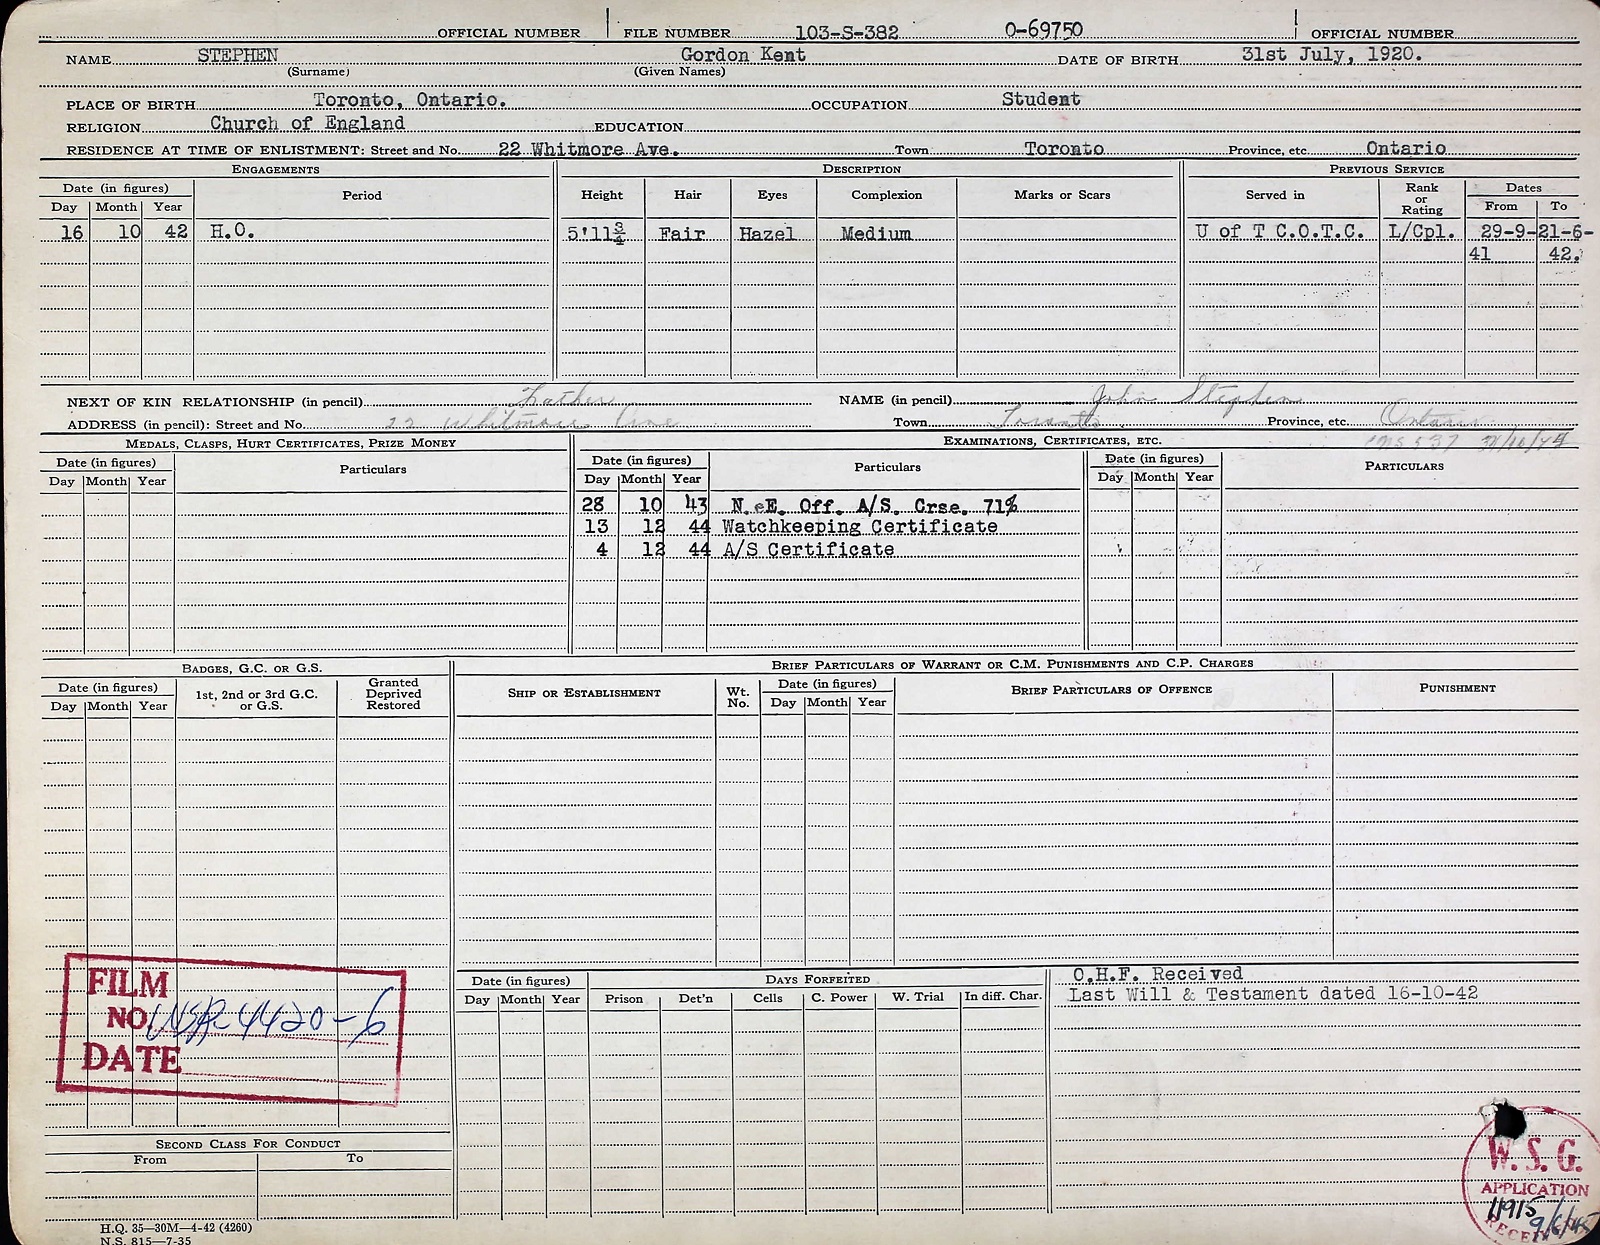 OFFICIAL NUMBER FILE NUMBER 103-S-382 O-69750 OFFICIAL NUMBER
NAME STEPHEN Gordon Kent DATE OF BIRTH 31st July, 1920.
(Surname) (Given Names)
PLACE OF BIRTH Toronto, Ontario. OCCUPATION Student
RELIGION Church of England EDUCATION
RESIDENCE AT TIME OF ENLISTMENT: Street and No. 22 Whitmore Ave. Town Toronto Province, etc. Ontario
ENGAGEMENTS DESCRIPTION PREVIOUS SERVICE
Date (in figures) Period Height Hair Eyes Complexion Marks or Scars Served in Rank or Rating Dates
Day Month Year From To
16 10 42 H.O. 5'11¾ Fair Hazel Medium U of T C.O.T.C. L/Cpl. 29-9-21-6-
41 42.
NEXT OF KIN RELATIONSHIP (in pencil) Father NAME (in pencil) John Stephen
ADDRESS (in pencil): Street and No. 22 Whitmore Ave Town Toronto Province, etc. Ontario
MEDALS, CLASPS, HURT CERTIFICATES, PRIZE MONEY EXAMINATIONS, CERTIFICATES, ETC.
Date (in figures) Particulars Date (in figures) Particulars Date (in figures) PARTICULARS
Day Month Year Day Month Year Day Month Year
28 10 43 N.eE. Off. A/S. Crse. 71%
13 12 44 Watchkeeping Certificate
4 12 44 A/S Certificate
BADGES, G.C. OR G.S. BRIEF PARTICULARS OF WARRANT OR C.M. PUNISHMENTS AND C.P. CHARGES
Date (in figures) 1st, 2nd or 3rd G.C. or G.S. Granted Deprived Restored SHIP OR ESTABLISHMENT Wt. No. Date (in figures) BRIEF PARTICULARS OF OFFENCE PUNISHMENT
Day Month Year Day Month Year
FILM
NO. 4420-6
DATE
Date (in figures) DAYS FORFEITED
Day Month Year Prison Det'n Cells C. Power W. Trial In diff. Char.
O.H.F. Received
Last Will & Testament dated 16-10-42
SECOND CLASS FOR CONDUCT
From To
W. S. G.
APPLICATION
11915
9/6/45
H.Q. 35—30M—4-42 (4260)
N.S. 815—7-35